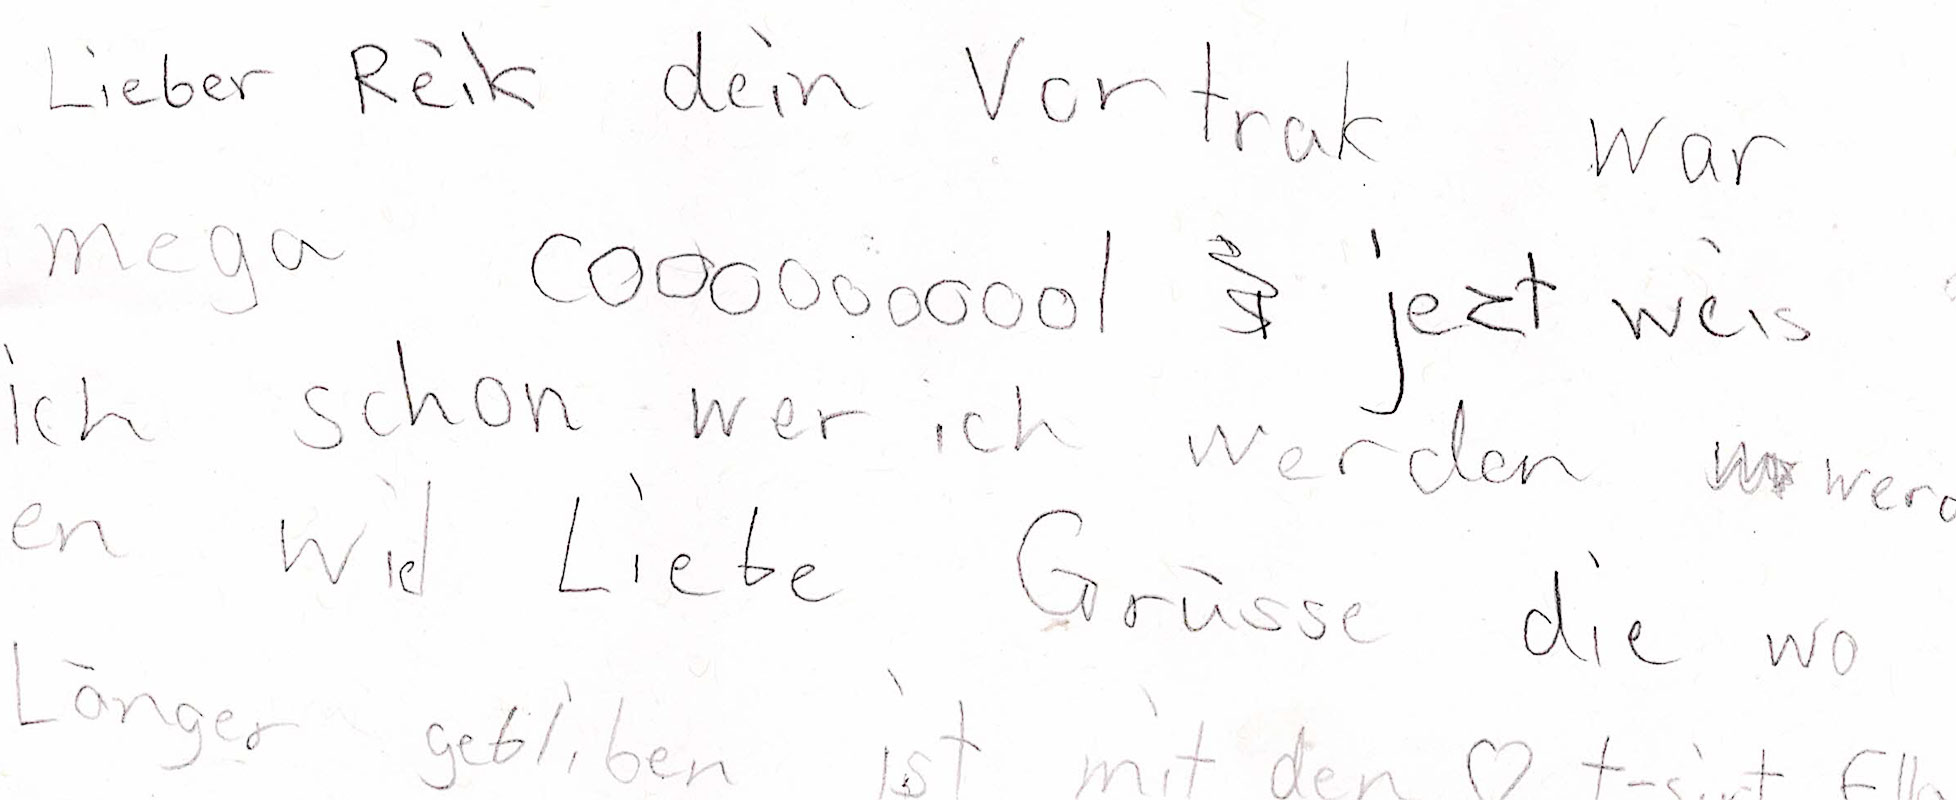 Lieber Reik dein Vortrak war
mega cooooooooool jezt weis
ich schon wer ich werden werd
en wil Liebe Grüsse die wo
Länger gebliben ist mit den ♡ t-sirt Ella